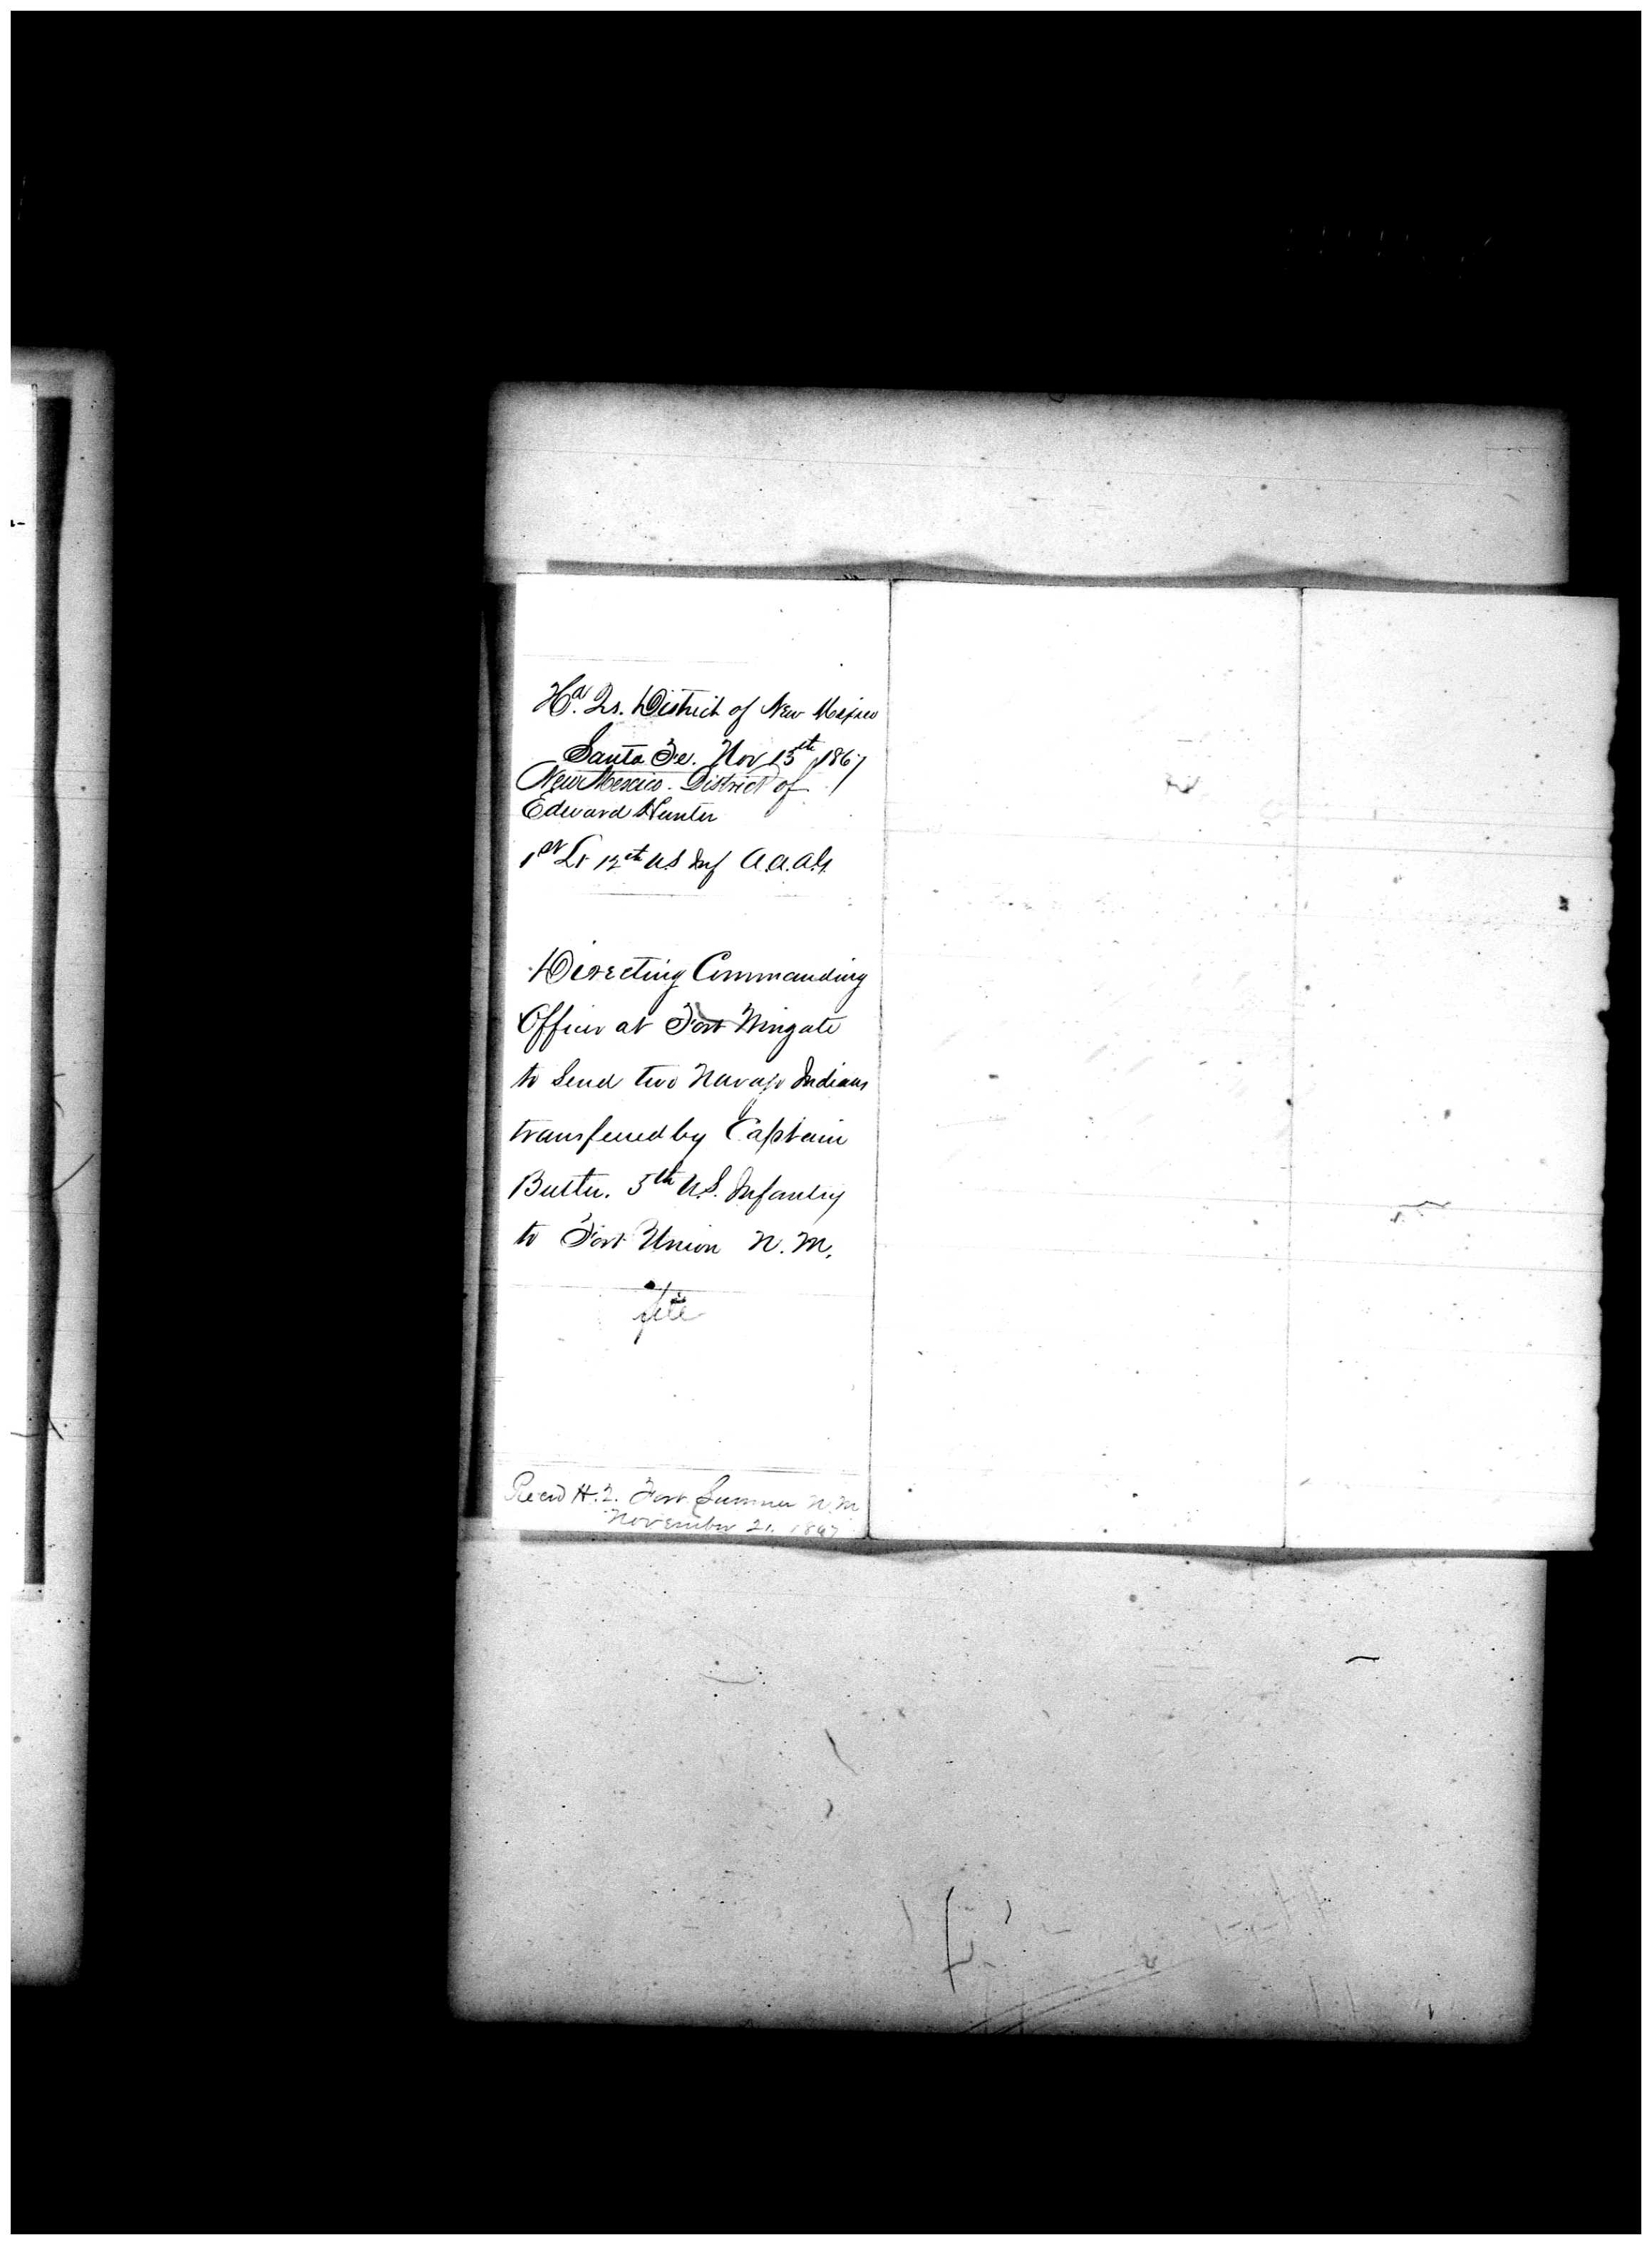 Hd. Qs. District of New Mexico
Santa Fe. Nov 15th 1867
New Mexico. District of
Edward Hunter
1st Lt 12th U.S Inf A.A.A.G.
Directing Commanding
Officer at Fort Wingate
to Send two Navajo Indians
transferred by Captain
Butler. 5th U.S. Infantry
to Fort Union N. M.
file
Recd H.Q. Fort Sumner N.M
November 21. 1867